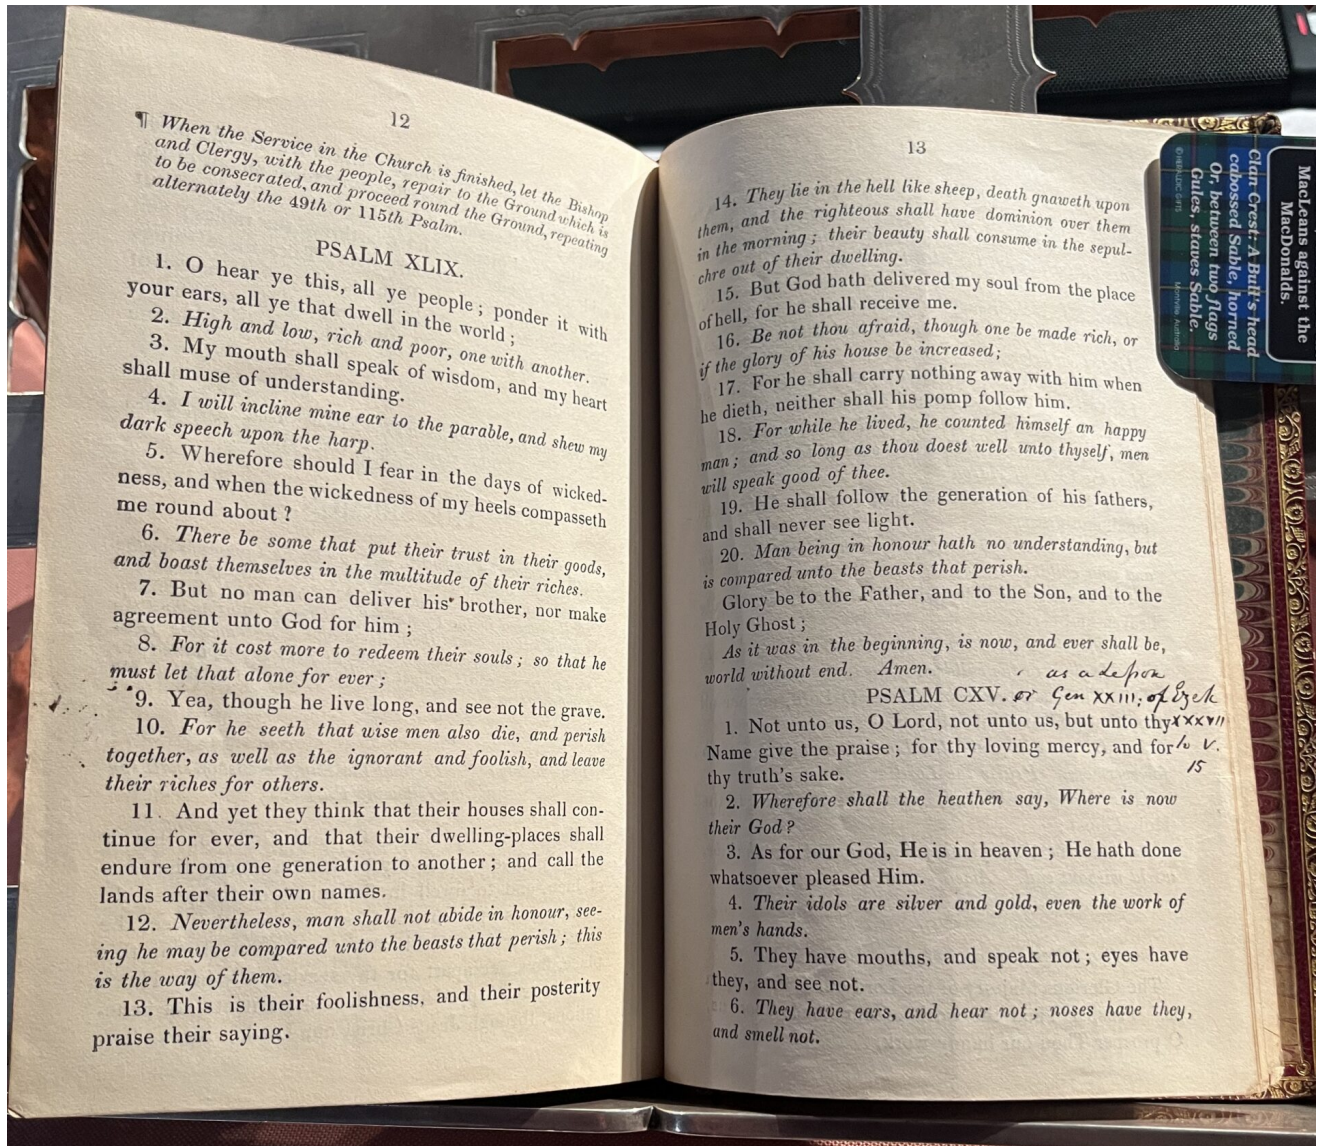 12
¶ When the Service in the Church is finished, let the Bishop
and Clergy, with the people, repair to the Ground which is
to be consecrated, and proceed round the Ground, repeating
alternately the 49th or 115th Psalm.
PSALM XLIX.
1. O hear ye this, all ye people; ponder it with
your ears, all ye that dwell in the world;
2. High and low, rich and poor, one with another.
3. My mouth shall speak of wisdom, and my heart
shall muse of understanding.
4. I will incline mine ear to the parable, and shew my
dark speech upon the harp.
5. Wherefore should I fear in the days of wicked-
ness, and when the wickedness of my heels compasseth
me round about?
6. There be some that put their trust in their goods,
and boast themselves in the multitude of their riches.
7. But no man can deliver his brother, nor make
agreement unto God for him;
8. For it cost more to redeem their souls; so that he
must let that alone for ever;
9. Yea, though he live long, and see not the grave.
10. For he seeth that wise men also die, and perish
together, as well as the ignorant and foolish, and leave
their riches for others.
11. And yet they think that their houses shall con-
tinue for ever, and that their dwelling-places shall
endure from one generation to another; and call the
lands after their own names.
12. Nevertheless, man shall not abide in honour, see-
ing he may be compared unto the beasts that perish; this
is the way of them.
13. This is their foolishness, and their posterity
praise their saying.
13
14. They lie in the hell like sheep, death gnaweth upon
them, and the righteous shall have dominion over them
in the morning; their beauty shall consume in the sepul-
chre out of their dwelling.
15. But God hath delivered my soul from the place
of hell, for he shall receive me.
16. Be not thou afraid, though one be made rich, or
if the glory of his house be increased;
17. For he shall carry nothing away with him when
he dieth, neither shall his pomp follow him.
18. For while he lived, he counted himself an happy
man; and so long as thou doest well unto thyself, men
will speak good of thee.
19. He shall follow the generation of his fathers,
and shall never see light.
20. Man being in honour hath no understanding, but
is compared unto the beasts that perish.
Glory be to the Father, and to the Son, and to the
Holy Ghost;
As it was in the beginning, is now, and ever shall be,
world without end. Amen.
as a Lesson
PSALM CXV. or Gen XXIII; of Ezek
1. Not unto us, O Lord, not unto us, but unto thy XXXVII
Name give the praise; for thy loving mercy, and for to v.
thy truth's sake. 15
2. Wherefore shall the heathen say, Where is now
their God?
3. As for our God, He is in heaven; He hath done
whatsoever pleased Him.
4. Their idols are silver and gold, even the work of
men's hands.
5. They have mouths, and speak not; eyes have
they, and see not.
6. They have ears, and hear not; noses have they,
and smell not.
MacLeans against the
MacDonalds.
Clan Crest: A Bull's head
cabossed Sable, horned
Or, between two flags
Gules, staves Sable.
©HERALDIC GIFTS Montville Australia